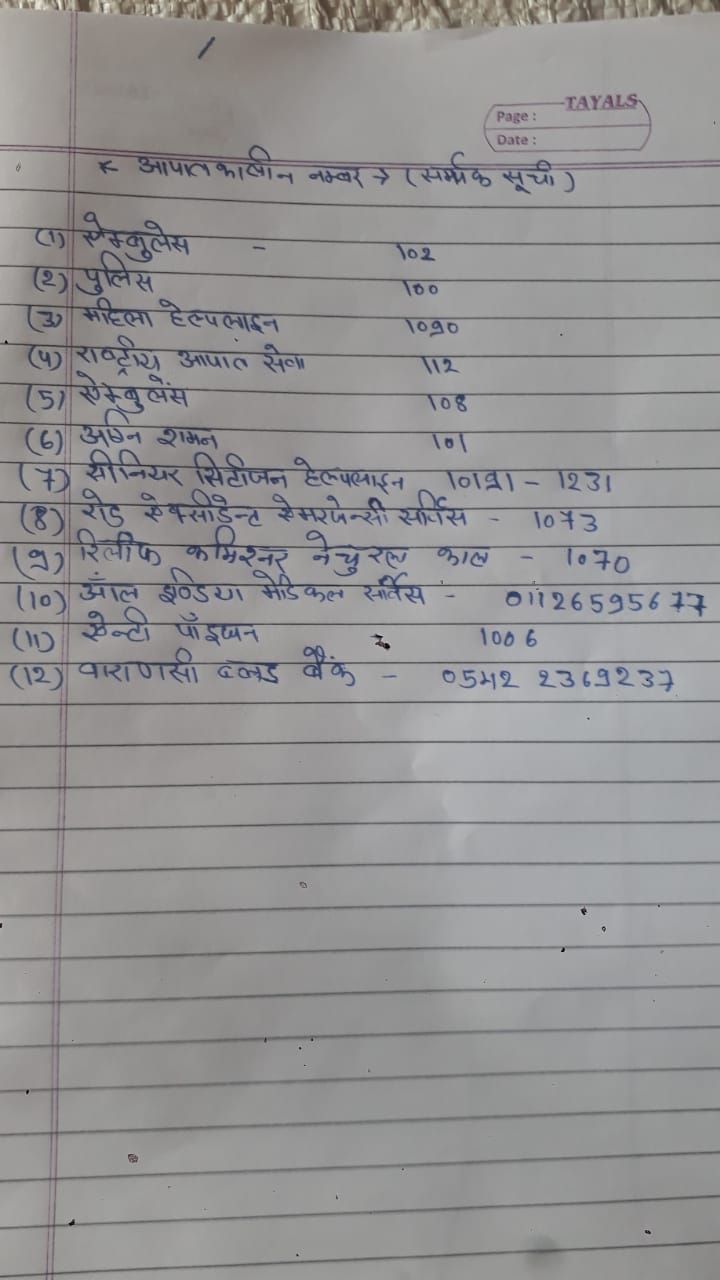 TAYALS
Page :
Date :
* आपातकालीन नम्बर → (सर्म्पक सूची)
(1) ऐम्बुलेस - 102
(2) पुलिस 100
(3) महिला हेल्पलाइन 1090
(4) राष्ट्रीय आपात सेवा 112
(5) ऐम्बुलेंस 108
(6) अग्नि शमन 101
(7) सीनियर सिटीजन हेल्पलाइन - 1231
(8) रोड ऐक्सीडेन्ट ऐमरजेन्सी सर्विस - 1073
(9) रिलीफ कमिश्नर नेचुरल काल - 1070
(10) ऑल इण्डिया मेडिकल सर्विस - 01126595677
(11) ऐन्टी पॉइजन 1006
(12) वाराणसी ब्लड बैंक - 0542 2369237